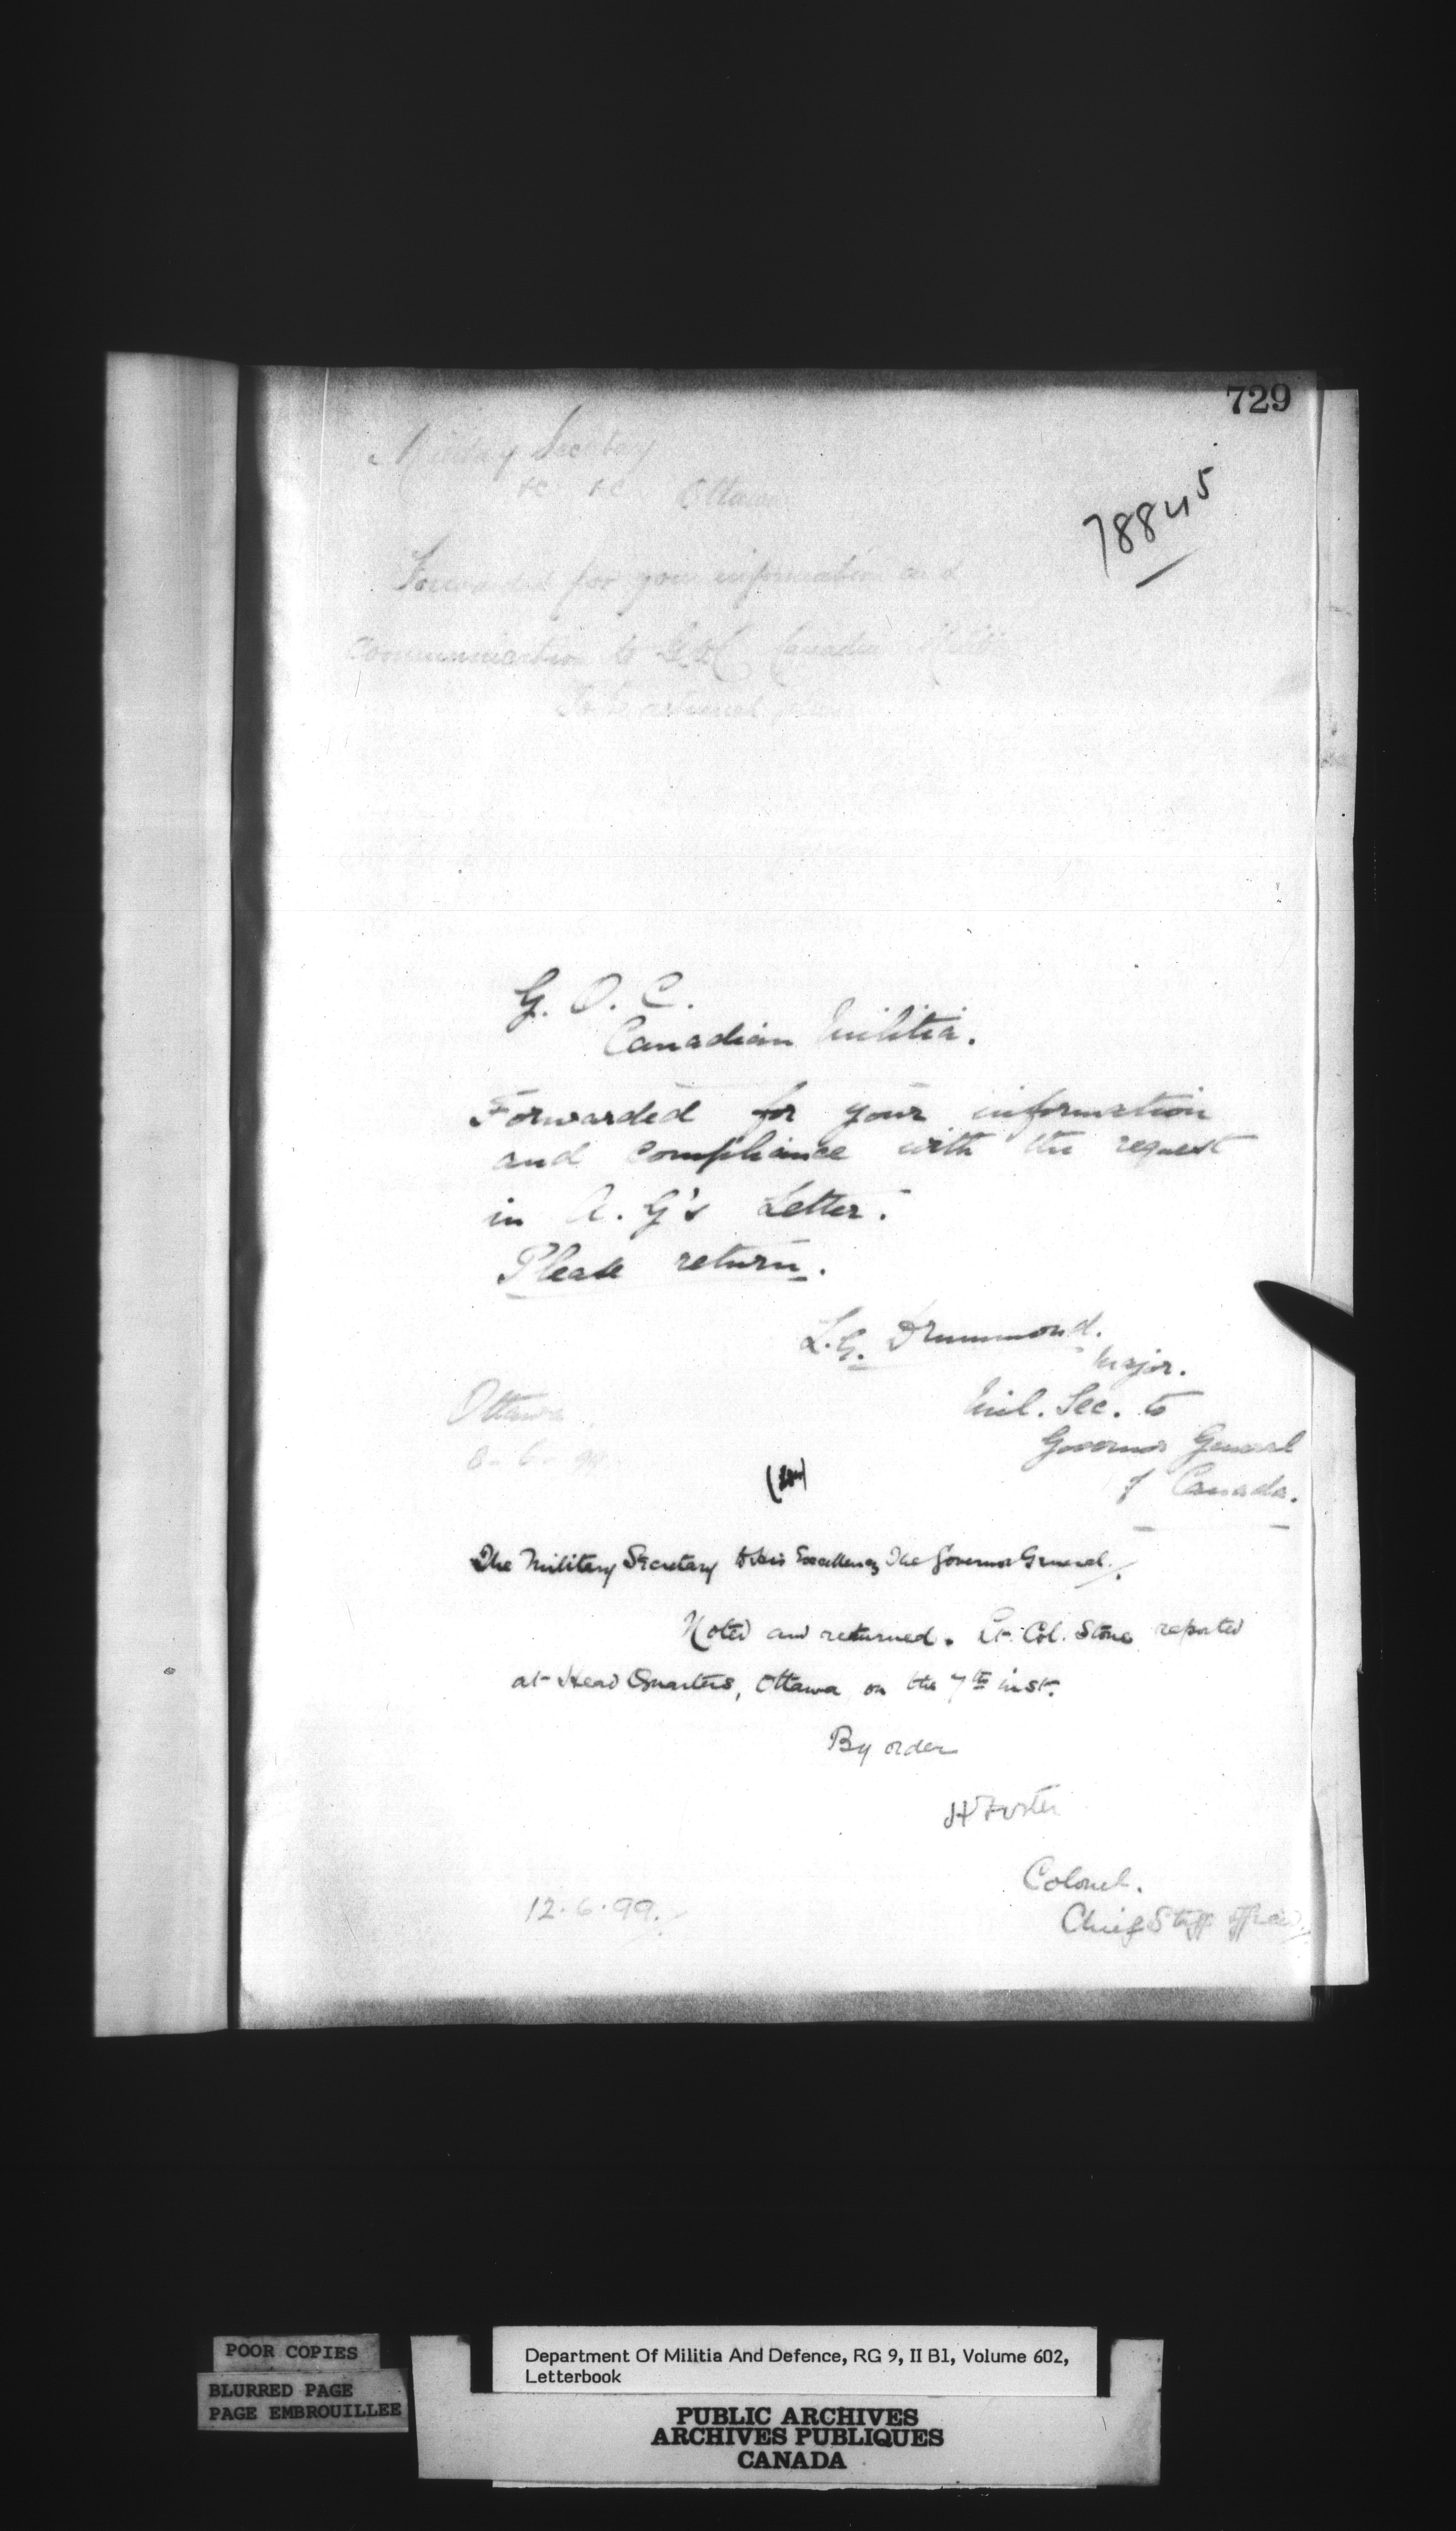 729
78845
Military Secretary
&c &c Ottawa
Forwarded for your information and
communication to G.O.C. Canadian Militia
To be returned please
G. O. C.
Canadian Militia.
Forwarded for your information
and compliance with the request
in A. G's Letter.
Please return.
L.G. Drummond.
Major.
Mil. Sec. to
Governor General
of Canada.
Ottawa
8-6-99.
The Military Secretary to His Excellency The Governor General.
Noted and returned. Lt. Col. Stone reported
at Head Quarters, Ottawa on the 7th inst.
By order
H Foster
Colonel.
Chief Staff Officer
12.6.99.
POOR COPIES
BLURRED PAGE
PAGE EMBROUILLEE
Department Of Militia And Defence, RG 9, II B1, Volume 602,
Letterbook
PUBLIC ARCHIVES
ARCHIVES PUBLIQUES
CANADA